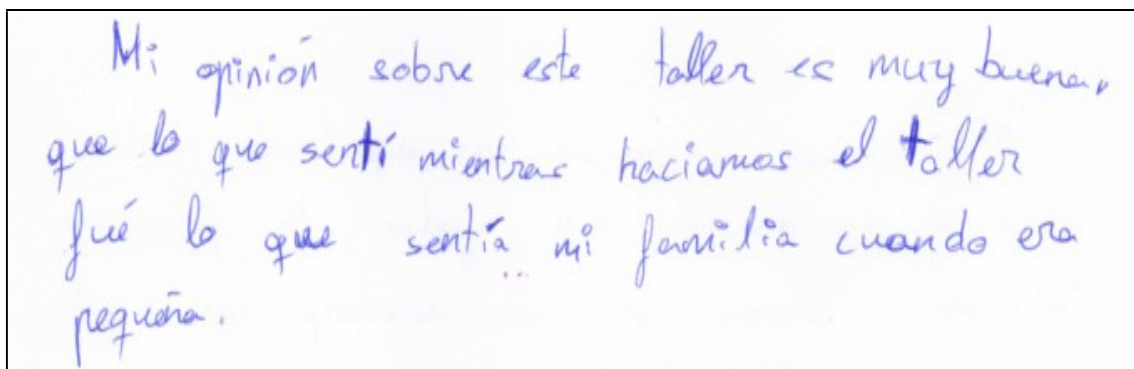 Mi opinión sobre este taller es muy buena,
que lo que sentí mientras haciamos el taller
fué lo que sentía mi familia cuando era
pequeña.